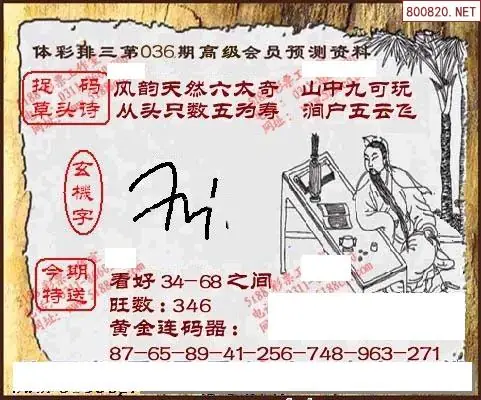 800820.NET
体彩排三第036期高级会员预测资料
捉码
草头诗
风韵天然六太奇 山中九可玩
从头只数五为寿 涧户五云飞
玄機字
今期
特送
看好34-68之间
旺数:346
黄金连码器:
87-65-89-41-256-748-963-271